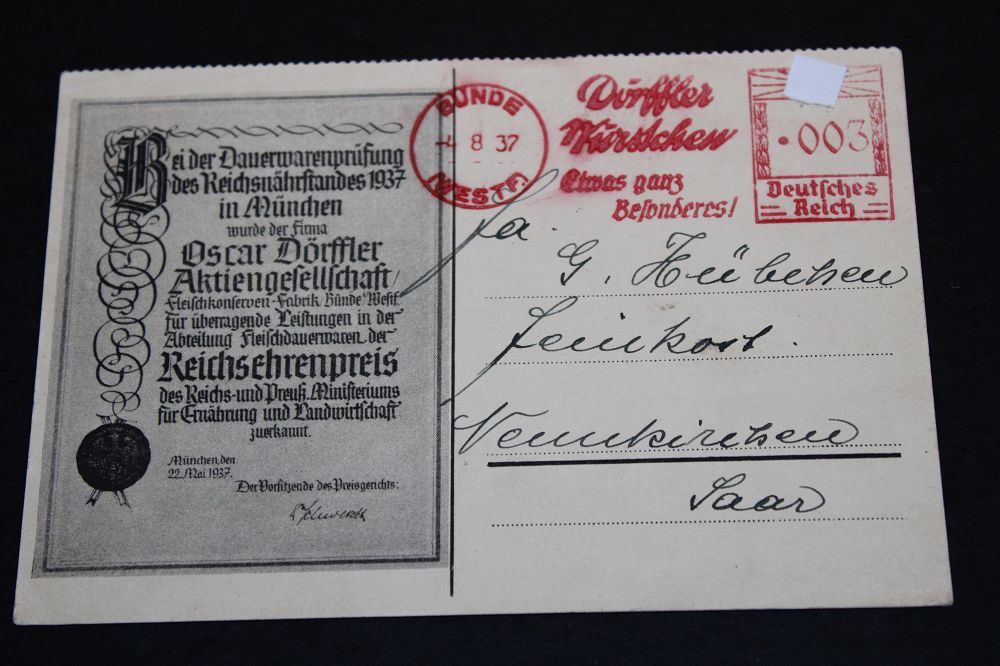 Bei der Dauerwarenprüfung
des Reichsnährstandes 1937
in München
wurde der Firma
Oscar Dörffler
Aktiengesellschaft,
Fleischkonserven-Fabrik Bünde/Westf.
für überragende Leistungen in der
Abteilung Fleischdauerwaren der
Reichsehrenpreis
des Reichs- und Preuß. Ministeriums
für Ernährung und Landwirtschaft
zuerkannt.
München, den
22. Mai 1937.
Der Vorsitzende des Preisgerichts:
BÜNDE
-4 8 37
(WESTF.)
Dörffler
Würstchen
Etwas ganz
Besonderes!
003
Deutsches
Reich
Fa.
G. Hübchen
Feinkost.
Neunkirchen
Saar